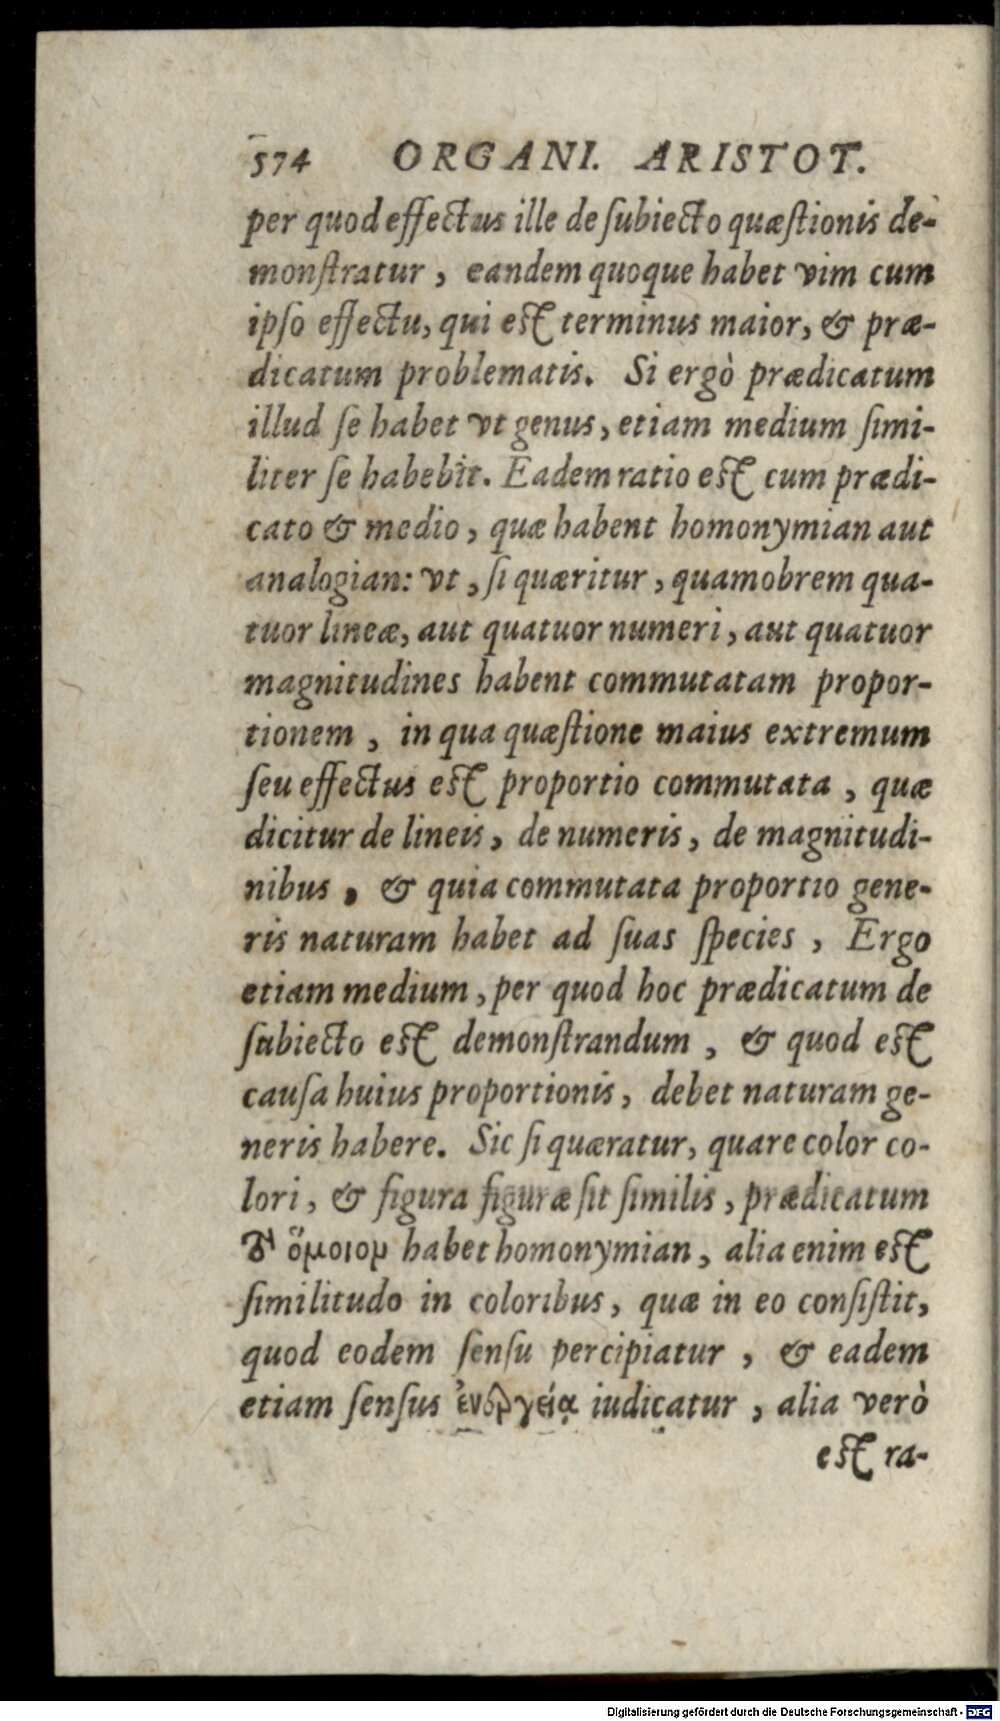 574 ORGANI. ARISTOT.
per quod effectus ille de ſubiecto quæſtionis de-
monſtratur, eandem quoque habet vim cum
ipſo effectu, qui eſt terminus maior, & præ-
dicatum problematis. Si ergò prædicatum
illud ſe habet vt genus, etiam medium ſimi-
liter ſe habebit. Eadem ratio eſt cum prædi-
cato & medio, quæ habent homonymian aut
analogian: vt, ſi quæritur, quamobrem qua-
tuor lineæ, aut quatuor numeri, aut quatuor
magnitudines habent commutatam propor-
tionem, in qua quæſtione maius extremum
ſeu effectus eſt proportio commutata, quæ
dicitur de lineis, de numeris, de magnitudi-
nibus, & quia commutata proportio gene-
ris naturam habet ad ſuas ſpecies, Ergo
etiam medium, per quod hoc prædicatum de
ſubiecto eſt demonſtrandum, & quod eſt
cauſa huius proportionis, debet naturam ge-
neris habere. Sic ſi quæratur, quare color co-
lori, & figura figuræ ſit ſimilis, prædicatum
τὸ ὅμοιον habet homonymian, alia enim eſt
ſimilitudo in coloribus, quæ in eo conſiſtit,
quod eodem ſenſu percipiatur, & eadem
etiam ſenſus ἐνεργείᾳ iudicatur, alia verò
eſt ra-
Digitalisierung gefördert durch die Deutsche Forschungsgemeinschaft - DFG